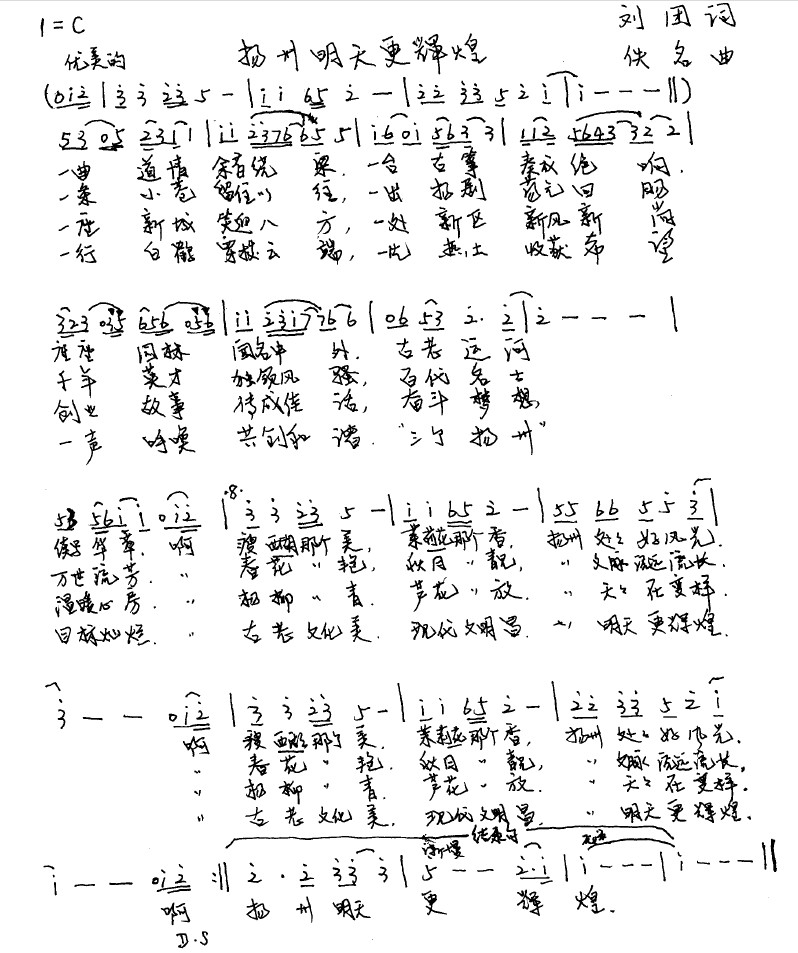 1=C 刘团词
优美的 扬州明天更辉煌 佚名曲
(0 i 2 | 3 3 2 3 5 - | i i 6 5 2 - | 2 2 3 3 5 2 i | i - - - ||)
5 3 0 5 2 3 i i | i i 2 3 7 6 6 5 5 | i 6 0 i 5 6 3 3 | i i 2 5 6 4 3 3 2 2 |
一曲 道情 余音绕 梁. 一台 古筝 奏放 绝 响.
一条 小巷 留住 往, 一出 扬剧 荡气回 肠
一座 新城 笑迎八 方, 一处 新区 新风新 尚
一行 白鹤 穿梭云 端, 一片 热土 收获希 望
3 2 3 0 3 5 6 5 6 0 5 6 | i i 2 3 i 7 7 6 6 | 0 6 5 3 2 · 2 | 2 - - - |
座座 园林 闻名中 外. 古老 运河
千年 英才 独领风 骚, 百代 名士
创业 故事 传成佳 话, 奋斗 梦想,
一声 呼唤 共创和 谐. "三个 扬州"
5 3 5 6 i i 0 i 2 | ·8· 3 3 2 3 5 - | i i 6 5 2 - | 5 5 6 6 5 5 3 |
续写华章. 啊 瘦西湖那个美, 茉莉花那个香, 扬州 处处 好风光.
万世流芳. 〃 春花 〃 艳, 秋月 〃 靓, 〃 文脉 流远流长.
温暖心房. 〃 杨柳 〃 青. 芦花 〃 放. 〃 天天 在变样.
目标灿烂. 〃 古老文化美. 现代文明昌. 〃 明天更辉煌.
3 - - 0 i 2 | 3 3 2 3 5 - | i i 6 5 2 - | 2 2 3 3 5 2 i |
啊 瘦西湖那个美. 茉莉花那个香, 扬州 处处 好风光.
〃 春花 〃 艳. 秋月 〃 靓, 〃 文脉 流远流长.
〃 杨柳 〃 青. 芦花 〃 放. 〃 天天 在变样.
〃 古老文化美. 现代文明昌. 〃 明天更辉煌.
渐慢 结束句
i - - 0 i 2 :|| 2 · 2 3 3 3 | 5 - - 2 · i | i - - - | i - - - ||
啊 扬州明天 更 辉煌.
D.S